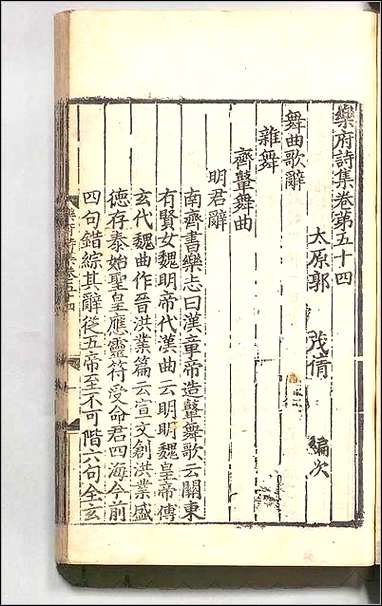 樂府詩集卷第五十四
太原郭 茂倩 編次
舞曲歌辭
雜舞
齊鼙舞曲
明君辭
南齊書樂志曰漢章帝造鼙舞歌云關東
有賢女魏明帝代漢曲云明明魏皇帝傅
玄代魏曲作晉洪業篇云宣文創洪業盛
德存泰始聖皇應靈符受命君四海今前
四句錯綜其辭從五帝至不可階六句全玄
樂府詩集卷五十四